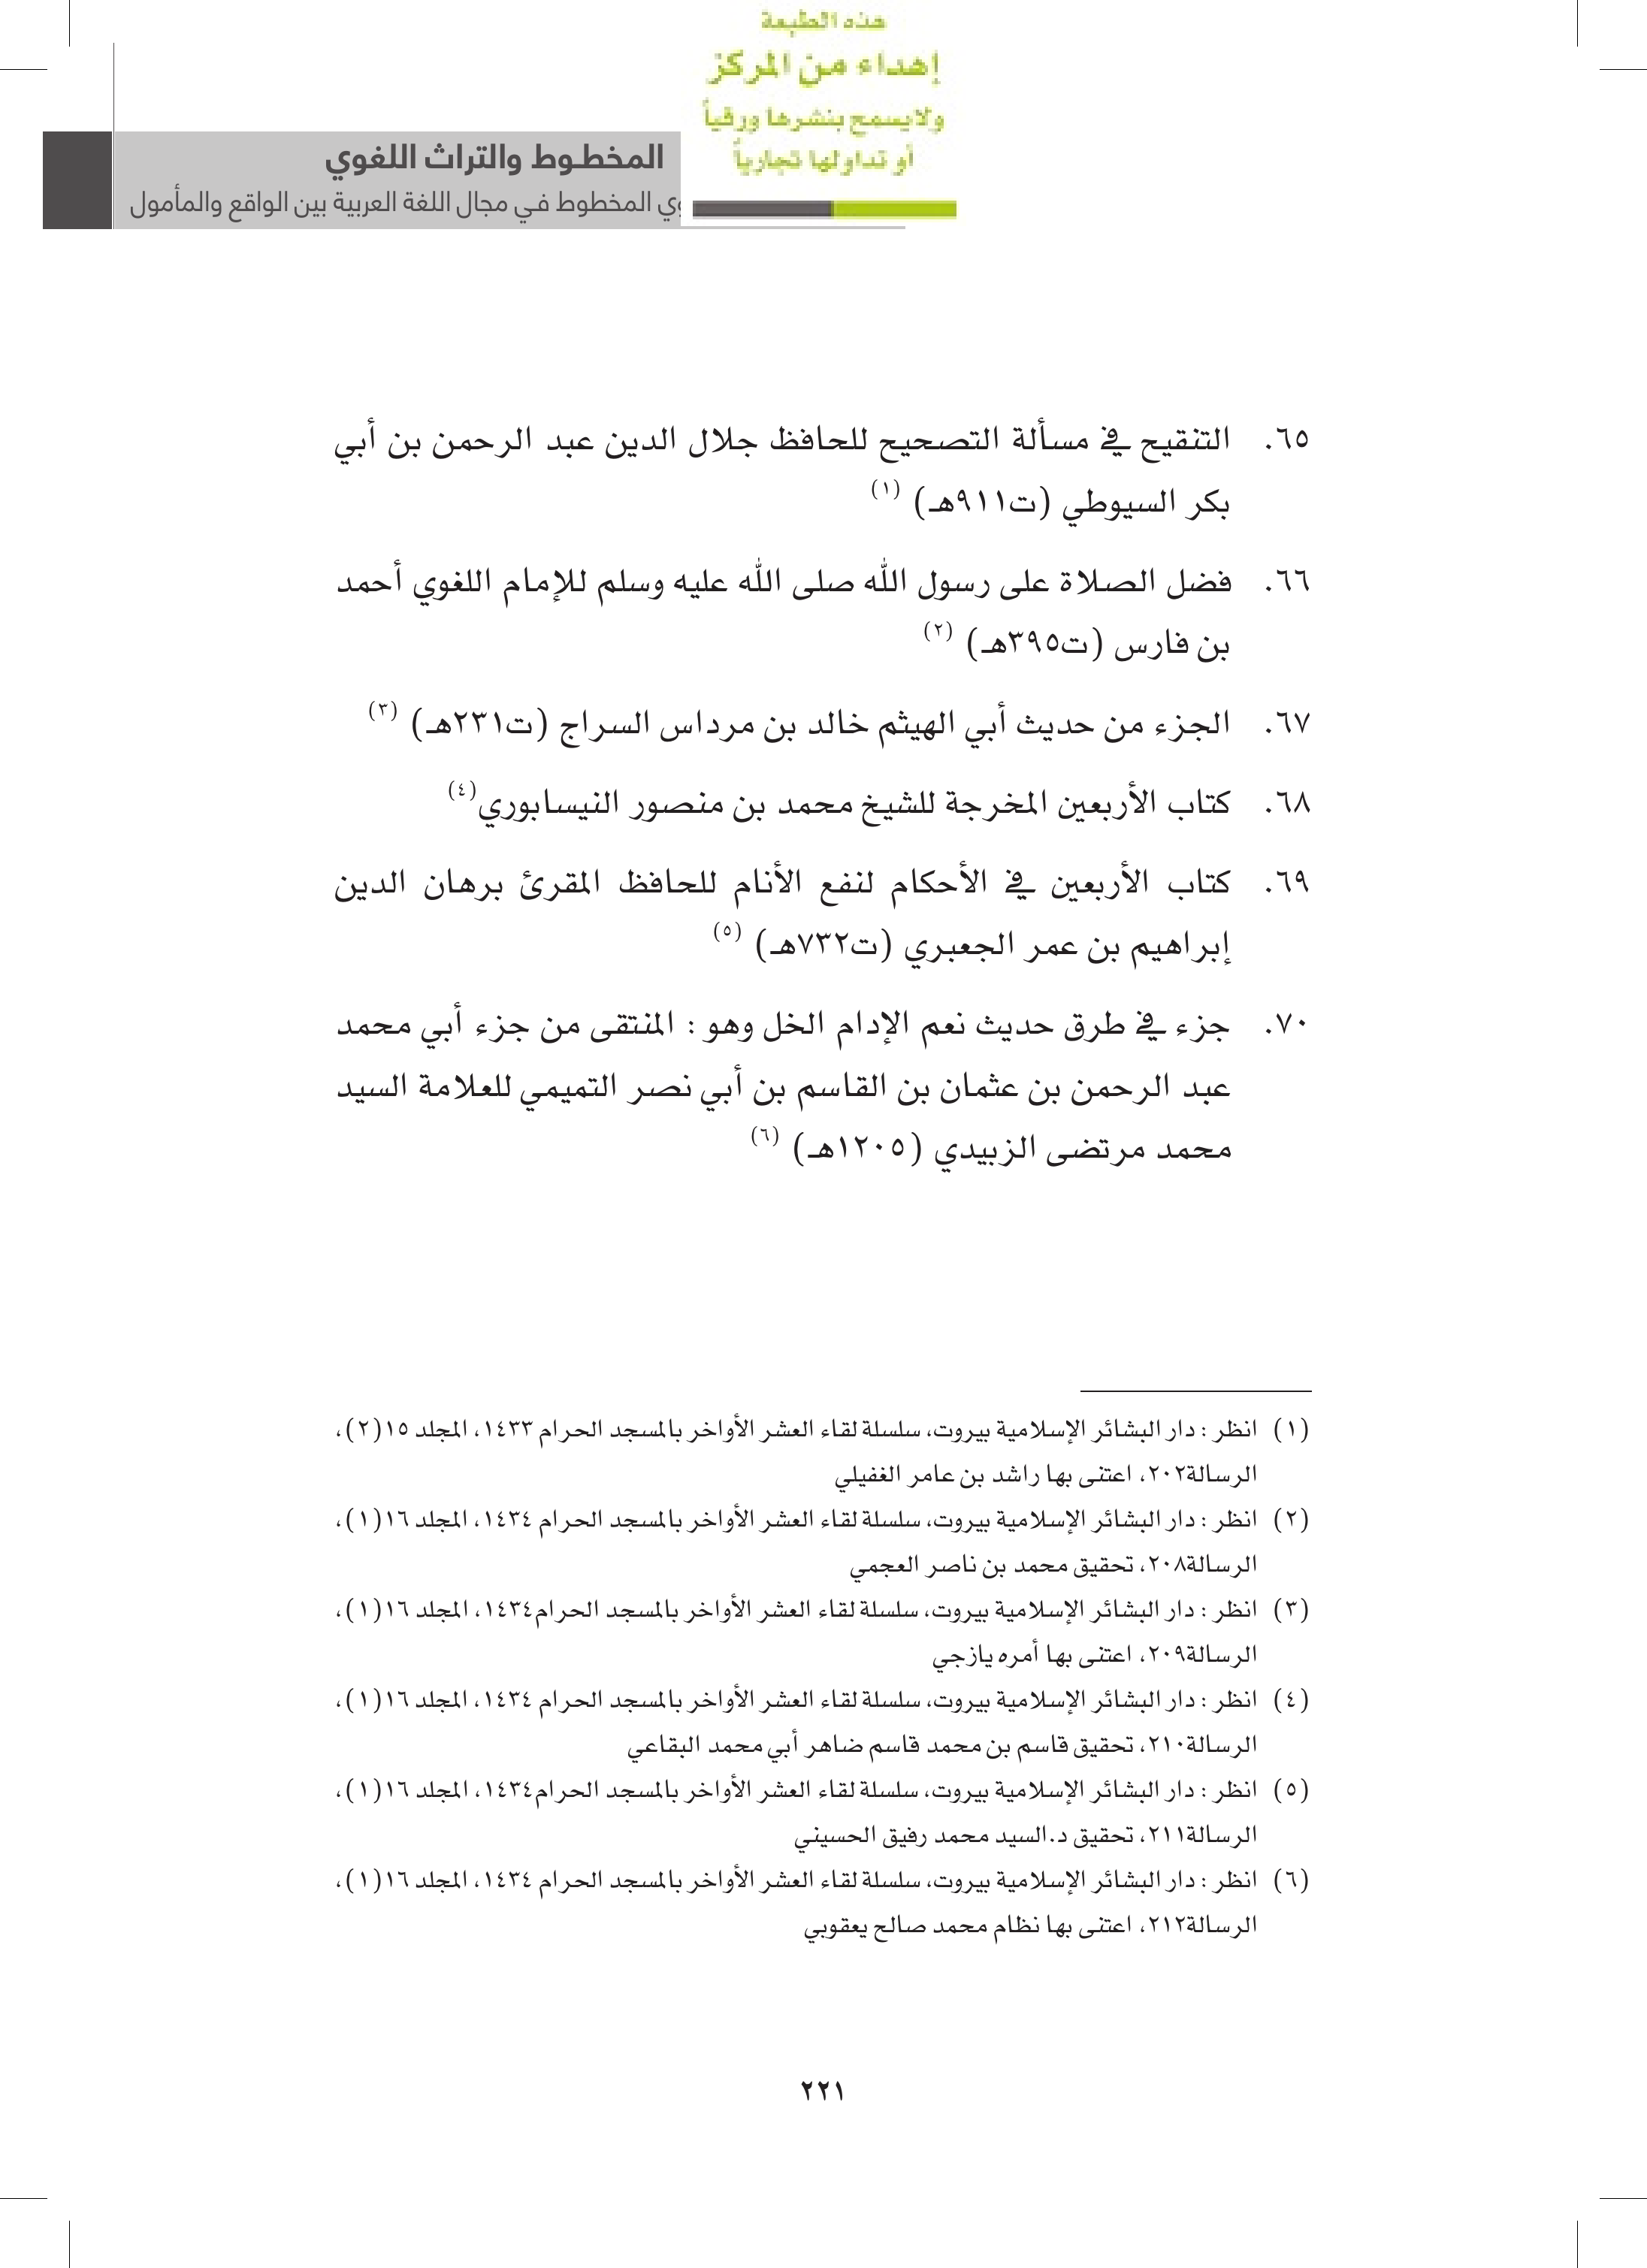 هذه الطبعة
إهداء من المركز
ولايسمح بنشرها ورقياً
أو تداولها تجارياً
المخطـوط والتراث اللغوي
المخطوط فـي مجال اللغة العربية بين الواقع والمأمول
٦٥. التنقيح في مسألة التصحيح للحافظ جلال الدين عبد الرحمن بن أبي
بكر السيوطي (ت٩١١هـ) (١)
٦٦. فضل الصلاة على رسول الله صلى الله عليه وسلم للإمام اللغوي أحمد
بن فارس (ت٣٩٥هـ) (٢)
٦٧. الجزء من حديث أبي الهيثم خالد بن مرداس السراج (ت٢٣١هـ) (٣)
٦٨. كتاب الأربعين المخرجة للشيخ محمد بن منصور النيسابوري(٤)
٦٩. كتاب الأربعين في الأحكام لنفع الأنام للحافظ المقرئ برهان الدين
إبراهيم بن عمر الجعبري (ت٧٣٢هـ) (٥)
٧٠. جزء في طرق حديث نعم الإدام الخل وهو : المنتقى من جزء أبي محمد
عبد الرحمن بن عثمان بن القاسم بن أبي نصر التميمي للعلامة السيد
محمد مرتضى الزبيدي (١٢٠٥هـ) (٦)
(١) انظر : دار البشائر الإسلامية بيروت، سلسلة لقاء العشر الأواخر بالمسجد الحرام ١٤٣٣، المجلد ١٥(٢)،
الرسالة٢٠٢، اعتنى بها راشد بن عامر الغفيلي
(٢) انظر : دار البشائر الإسلامية بيروت، سلسلة لقاء العشر الأواخر بالمسجد الحرام ١٤٣٤، المجلد ١٦(١)،
الرسالة٢٠٨، تحقيق محمد بن ناصر العجمي
(٣) انظر : دار البشائر الإسلامية بيروت، سلسلة لقاء العشر الأواخر بالمسجد الحرام١٤٣٤، المجلد ١٦(١)،
الرسالة٢٠٩، اعتنى بها أمره يازجي
(٤) انظر : دار البشائر الإسلامية بيروت، سلسلة لقاء العشر الأواخر بالمسجد الحرام ١٤٣٤، المجلد ١٦(١)،
الرسالة٢١٠، تحقيق قاسم بن محمد قاسم ضاهر أبي محمد البقاعي
(٥) انظر : دار البشائر الإسلامية بيروت، سلسلة لقاء العشر الأواخر بالمسجد الحرام١٤٣٤، المجلد ١٦(١)،
الرسالة٢١١، تحقيق د.السيد محمد رفيق الحسيني
(٦) انظر : دار البشائر الإسلامية بيروت، سلسلة لقاء العشر الأواخر بالمسجد الحرام ١٤٣٤، المجلد ١٦(١)،
الرسالة٢١٢، اعتنى بها نظام محمد صالح يعقوبي
٢٢١